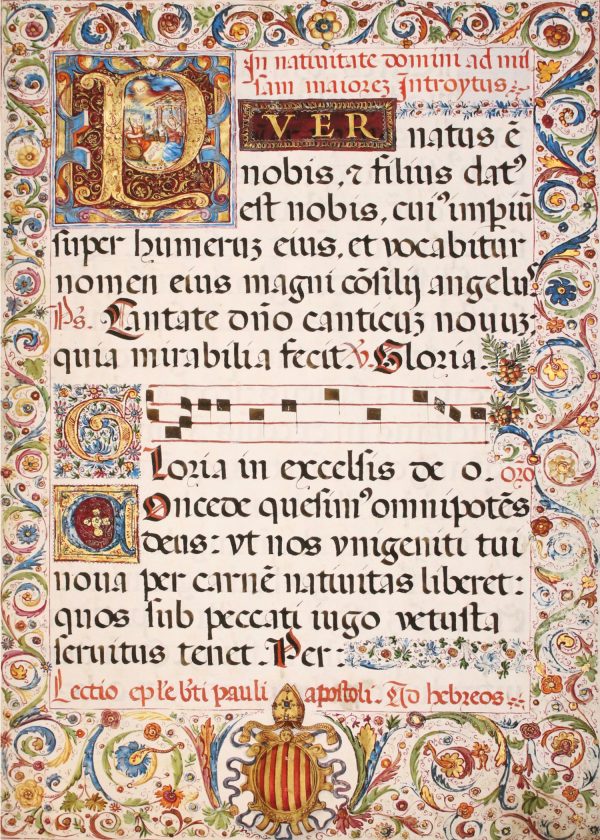 In natiuitate domini ad mis
sam maiorez Introytus
PVER natus ē
nobis, ⁊ filius datꝰ
est nobis, cuiꝰ impiū
super humeruz eius, et vocabitur
nomen eius magni cōsilij angelus
Ps. Cantate dño canticuz nouuz
quia mirabilia fecit. V. Gloria.
GLoria in excelsis de o.
oro
COncede quesumꝰ omnipotēs
deus: vt nos vnigeniti tui
noua per carnē natiuitas liberet:
quos sub peccati iugo vetusta
seruitus tenet. Per:
Lectio epl'e b'ti pauli apostoli. Ad hebreos